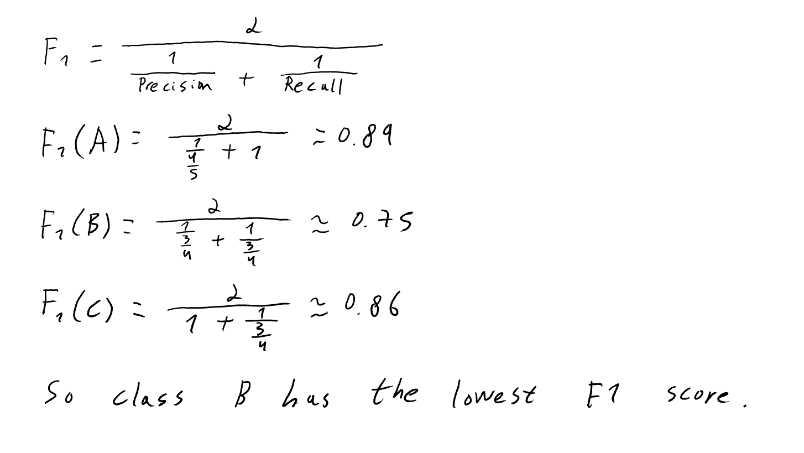 F₁ = 2 / (1/Precision + 1/Recall)
F₁(A) = 2 / (1/(4/5) + 1) ≃ 0.89
F₁(B) = 2 / (1/(3/4) + 1/(3/4)) ≃ 0.75
F₁(C) = 2 / (1 + 1/(3/4)) ≃ 0.86
So class B has the lowest F1 score.